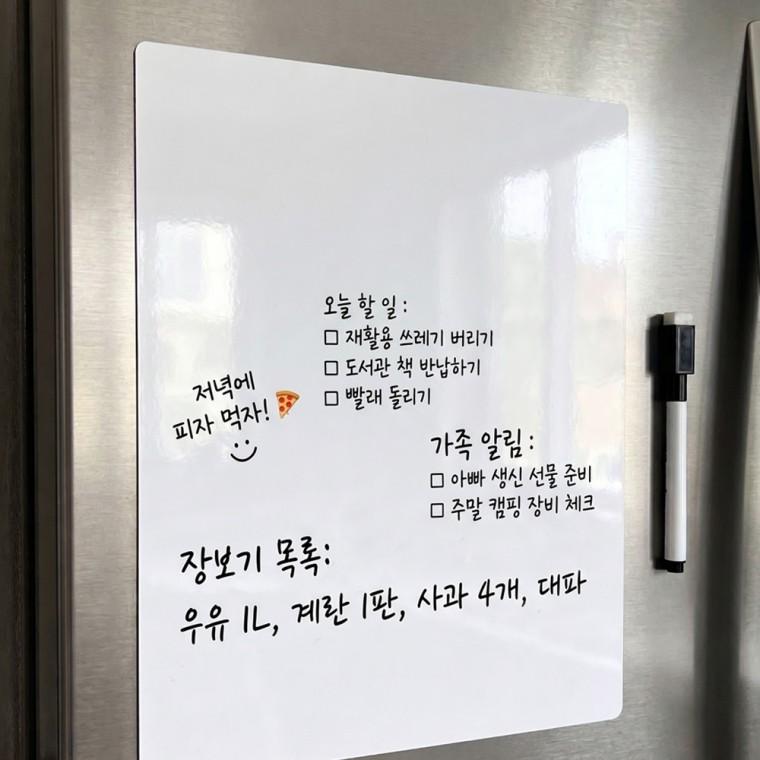 오늘 할 일 :
□ 재활용 쓰레기 버리기
□ 도서관 책 반납하기
□ 빨래 돌리기
저녁에
피자 먹자! 🍕
가족 알림 :
□ 아빠 생신 선물 준비
□ 주말 캠핑 장비 체크
장보기 목록:
우유 1L, 계란 1판, 사과 4개, 대파